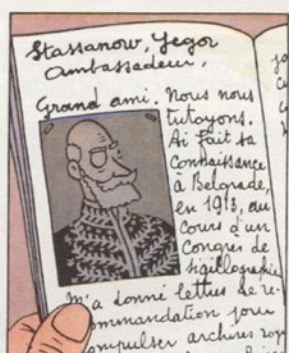 Stassanow, Yegor
Ambassadeur,
Grand ami. Nous nous
tutoyons.
Ai fait sa
connaissance
à Belgrade,
en 1913, au
cours d'un
Congrès de
sigillographie
M'a donné lettres de re-
commandation pour
compulser archives roy